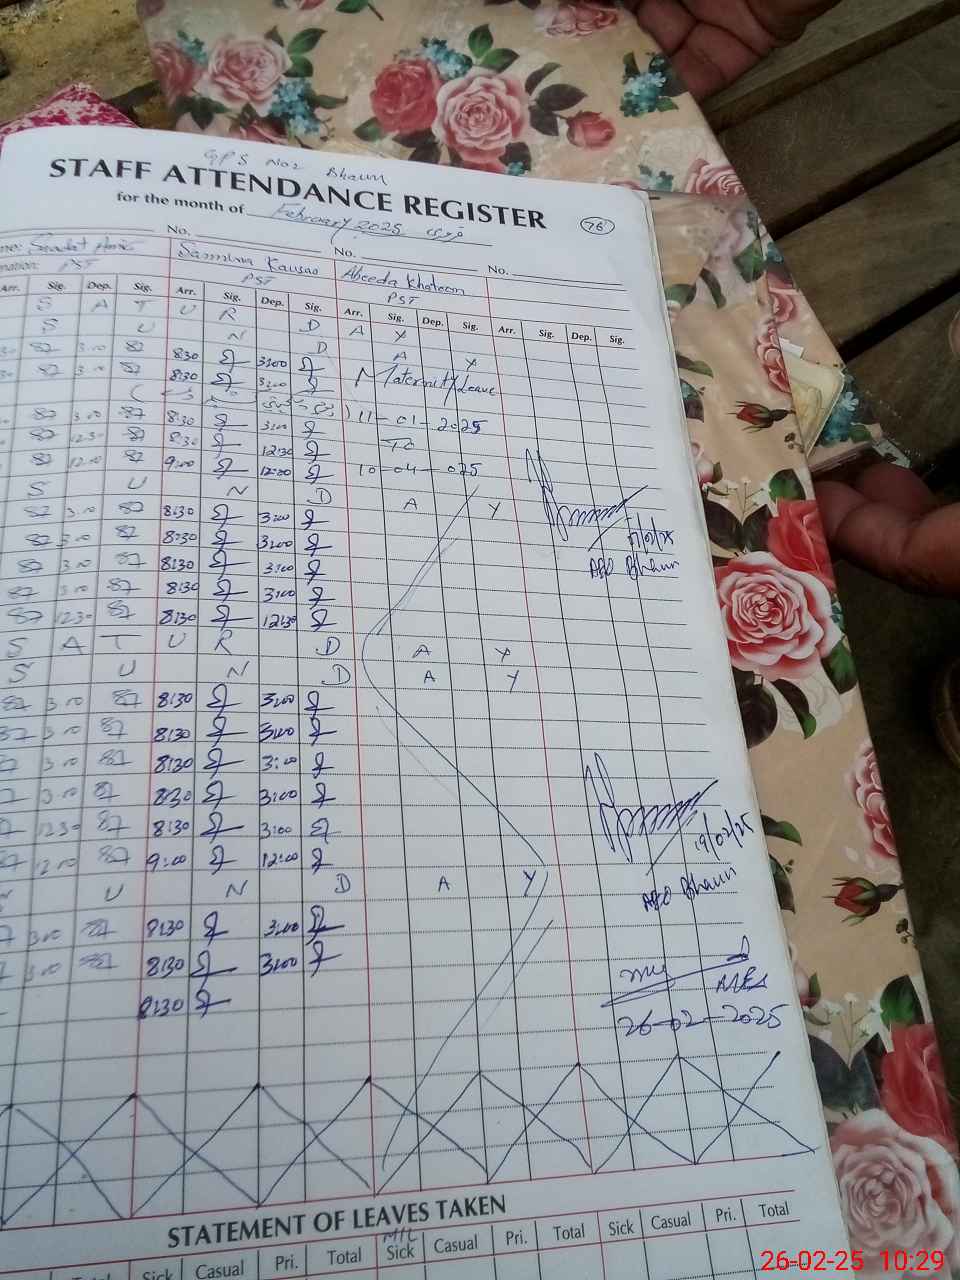 GPS No2 Bhaun
STAFF ATTENDANCE REGISTER
for the month of February 2025 فروری
76
No. No. No.
Saadat Samina Kausar Abeeda Khatoon
PST PST PST
Arr. Sig. Dep. Sig. Arr. Sig. Dep. Sig. Arr. Sig. Dep. Sig. Arr. Sig. Dep. Sig.
S A T U R D A Y
S U N D A Y
3:00 8:30 3:00 Maternity Leave
3:00 8:30 3:00
3:00 8:30 3:00 11-01-2025
12:30 8:30 12:30 To
12:00 9:00 12:00 10-04-025
S U N D A Y
3:00 8:30 3:00
3:00 8:30 3:00
AEO Bhaun
3:00 8:30 3:00
3:00 8:30 3:00
12:30 8:30 12:30
S A T U R D A Y
S U N D A Y
3:00 8:30 3:00
3:00 8:30 3:00
3:00 8:30 3:00
3:00 8:30 3:00
12:30 8:30 3:00
19/02/25
12:00 9:00 12:00
AEO Bhaun
U N D A Y
3:00 8:30 3:00
3:00 8:30 3:00
MEA
8:30
26-02-2025
STATEMENT OF LEAVES TAKEN
Total Sick Casual Pri. Total Sick Casual Pri. Total Sick Casual Pri. Total
26-02-25 10:29